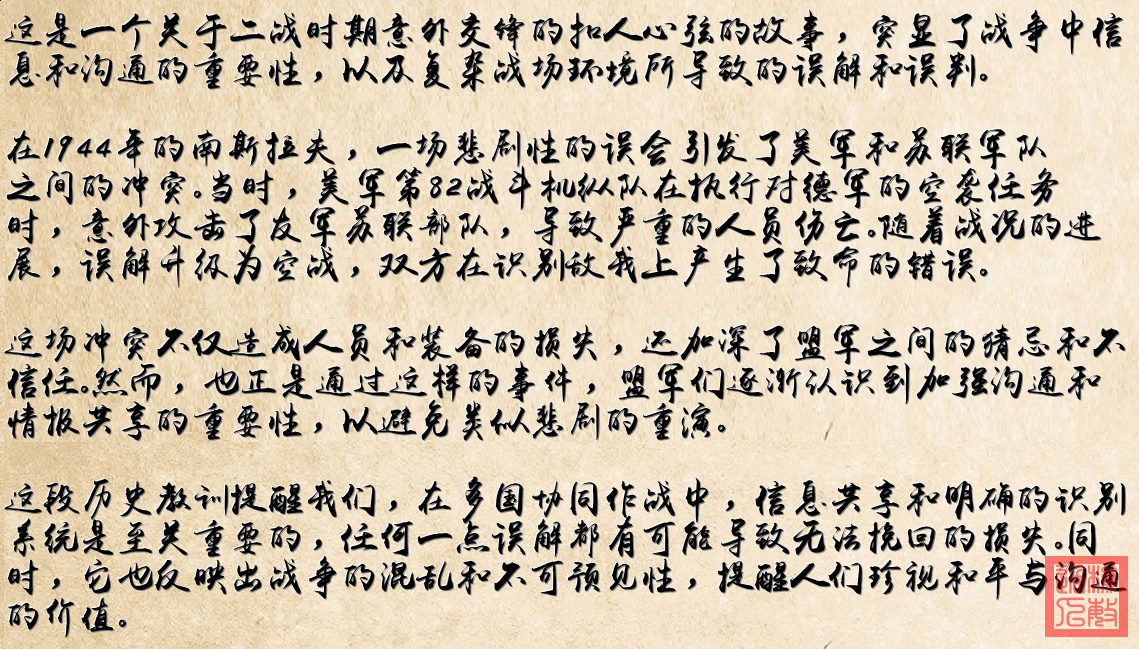 这是一个关于二战时期意外交锋的扣人心弦的故事，突显了战争中信
息和沟通的重要性，以及复杂战场环境所导致的误解和误判。
在1944年的南斯拉夫，一场悲剧性的误会引发了美军和苏联军队
之间的冲突。当时，美军第82战斗机纵队在执行对德军的空袭任务
时，意外攻击了友军苏联部队，导致严重的人员伤亡。随着战况的进
展，误解升级为空战，双方在识别敌我上产生了致命的错误。
这场冲突不仅造成人员和装备的损失，还加深了盟军之间的猜忌和不
信任。然而，也正是通过这样的事件，盟军们逐渐认识到加强沟通和
情报共享的重要性，以避免类似悲剧的重演。
这段历史教训提醒我们，在多国协同作战中，信息共享和明确的识别
系统是至关重要的，任何一点误解都有可能导致无法挽回的损失。同
时，它也反映出战争的混乱和不可预见性，提醒人们珍视和平与沟通
的价值。